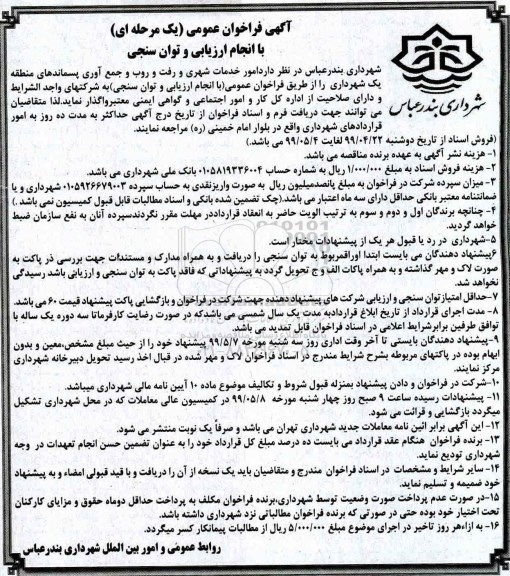 آگهی فراخوان عمومی (یک مرحله ای)
با انجام ارزیابی و توان سنجی
شهرداری بندرعباس
شهرداری بندرعباس در نظر دارد امور خدمات شهری و رفت و روب و جمع آوری پسماندهای منطقه
یک شهرداری را از طریق فراخوان عمومی(با انجام ارزیابی و توان سنجی)به شرکتهای واجد الشرایط
و دارای صلاحیت از اداره کل کار و امور اجتماعی و گواهی ایمنی معتبرواگذار نماید.لذا متقاضیان
می توانند جهت دریافت فرم و اسناد فراخوان از تاریخ درج آگهی حداکثر به مدت ده روز به امور
قراردادهای شهرداری واقع در بلوار امام خمینی (ره) مراجعه نمایند.
(فروش اسناد از تاریخ دوشنبه ۹۹/۰۴/۲۲ لغایت ۹۹/۰۵/۴ می باشد.)
۱- هزینه نشر آگهی به عهده برنده مناقصه می باشد.
۲- هزینه فروش اسناد به مبلغ ۱/۰۰۰/۰۰۰ ریال به شماره حساب ۰۱۰۵۸۱۹۳۳۶۰۰۴ بانک ملی شهرداری می باشد.
۳- میزان سپرده شرکت در فراخوان به مبلغ پانصدمیلیون ریال به صورت واریزنقدی به حساب سپرده ۰۱۰۵۹۲۶۶۷۹۰۰۳ شهرداری و یا
ضمانتنامه معتبر بانکی حداقل دارای سه ماه اعتبار می باشد.(چک تضمین شده بانکی و اسناد مطالبات قابل قبول کمیسیون نمی باشد .)
۴- چنانچه برندگان اول و دوم و سوم به ترتیب الویت حاضر به انعقاد قرارداددر مهلت مقرر نگردندسپرده آنان به نفع سازمان ضبط
خواهد گردید.
۵-شهرداری در رد یا قبول هر یک از پیشنهادات مختار است.
۶پیشنهاد دهندگان می بایست ابتدا اوراقمربوط به توان سنجی را دریافت و به همراه مدارک و مستندات جهت بررسی در پاکت به
صورت لاک و مهر گذاشته و به همراه پاکات الف و ج تحویل گردد به پیشنهاداتی که فاقد پاکت به توان سنجی و ارزیابی باشد رسیدگی
نخواهد شد.
۷-حداقل امتیازتوان سنجی و ارزیابی شرکت های پیشنهاددهنده جهت شرکت در فراخوان و بازگشایی پاکت پیشنهاد قیمت ۶۰ می باشد.
۸- مدت اجرای قرارداد از تاریخ ابلاغ قراردادبه مدت یک سال شمسی می باشدکه در صورت رضایت کارفرماتا سه دوره یک ساله با
توافق طرفین برابرشرایط اعلامی در اسناد فراخوان قابل تمدید می باشد.
۹-پیشنهاد دهندگان بایستی تا آخر وقت اداری روز سه شنبه مورخه ۹۹/۵/۷ پیشنهاد خود را از حیث مبلغ مشخص،معین و بدون
ابهام بوده در پاکتهای مربوطه بشرح شرایط مندرج در اسناد فراخوان لاک و مهر شده در قبال اخذ رسید تحویل دبیرخانه شهرداری
مرکز نمایند.
۱۰-شرکت در فراخوان و دادن پیشنهاد بمنزله قبول شروط و تکالیف موضوع ماده ۱۰ آیین نامه مالی شهرداری میباشد.
۱۱- پیشنهادات رسیده ساعت ۹ صبح روز چهار شنبه مورخه ۹۹/۰۵/۸ در کمیسیون عالی معاملات که در محل شهرداری تشکیل
میگردد بازگشایی و قرائت می شود.
۱۲- این آگهی برابر ائین نامه معاملات جدید شهرداری تهران می باشد و صرفاً یک نوبت منتشر می شود.
۱۳- برنده فراخوان هنگام عقد قرارداد می بایست ده درصد مبلغ کل قرارداد خود را به عنوان تضمین حسن انجام تعهدات در وجه
شهرداری تودیع نماید.
۱۴- سایر شرایط و مشخصات در اسناد فراخوان مندرج و متقاضیان باید یک نسخه از آن را دریافت و با قید قبولی امضاء و به پیشنهاد
خود ضمیمه و تسلیم نماید.
۱۵-در صورت عدم پرداخت صورت وضعیت توسط شهرداری،برنده فراخوان مکلف به پرداخت حداقل دوماه حقوق و مزایای کارکنان
تحت اختیار خود بوده حتی در صورتی که برنده فراخوان مطالباتی نزد شهرداری داشته باشد.
۱۶- به ازاءهر روز تاخیر در اجرای موضوع مبلغ ۵/۰۰۰/۰۰۰ ریال از مطالبات پیمانکار کسر میگردد.
روابط عمومی و امور بین الملل شهرداری بندرعباس